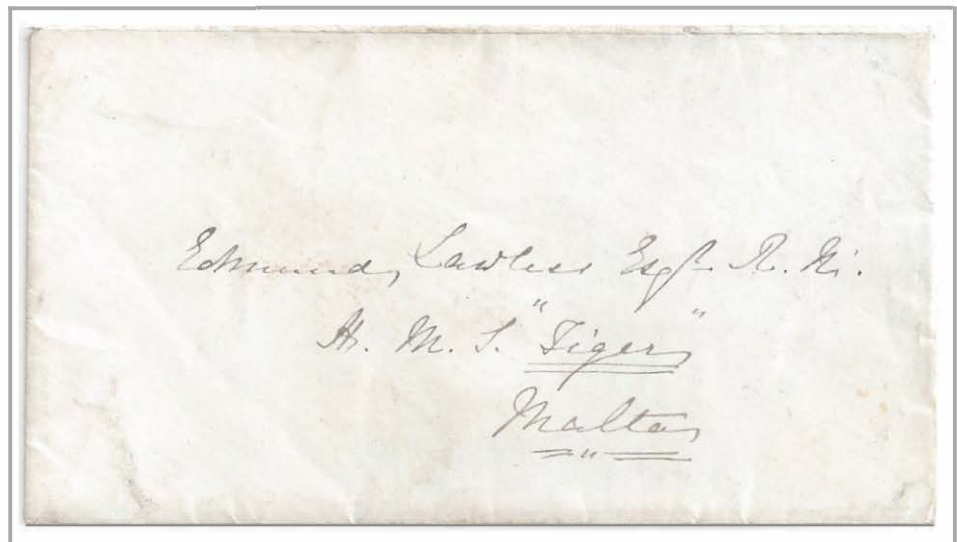 Edmund Lawless Esqr. R. N.
H. M. S. "Tiger"
Malta